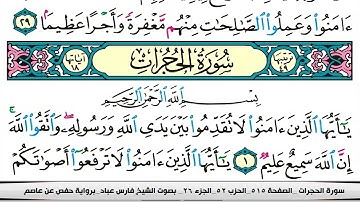 ءَامَنُوا۟ وَعَمِلُوا۟ ٱلصَّـٰلِحَـٰتِ مِنْهُم مَّغْفِرَةً وَأَجْرًا عَظِيمًۢا ٢٩
ترتيبها ٤٩ سُورَةُ الحُجُرَاتِ آياتها ١٨
بِسْمِ ٱللَّهِ ٱلرَّحْمَـٰنِ ٱلرَّحِيمِ
يَـٰٓأَيُّهَا ٱلَّذِينَ ءَامَنُوا۟ لَا تُقَدِّمُوا۟ بَيْنَ يَدَىِ ٱللَّهِ وَرَسُولِهِۦ ۖ وَٱتَّقُوا۟ ٱللَّهَ ۚ
إِنَّ ٱللَّهَ سَمِيعٌ عَلِيمٌ ١ يَـٰٓأَيُّهَا ٱلَّذِينَ ءَامَنُوا۟ لَا تَرْفَعُوٓا۟ أَصْوَٰتَكُمْ
سورة الحجرات _ الصفحة ٥١٥ _ الحزب ٥٢ _ الجزء ٢٦ _ بصوت الشيخ فارس عباد _ برواية حفص عن عاصم